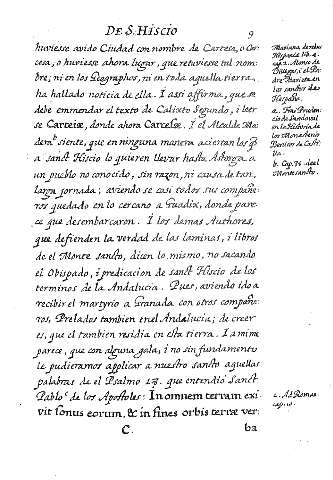 DE S. HISCIO
9
huviesse avido Ciudad con nombre de Cartesa, o Carcesa, o huviesse ahora lugar, que retuviesse tal nombre; ni en los Geographos, ni en toda aquella tierra
ha hallado noticia de ella. I assi affirma, que se
debe emmendar el texto de Calixto Segundo, i leer
se Carteiæ, donde ahora Carcesæ. I el Alcalde Madera siente, que en ninguna manera aciertan los q̃
a sanct Hiscio lo quieren llevar hasta Astorga a
un pueblo no conocido, sin razon, ni causa de tan
larga jornada; aviendo se casi todos sus compañeros quedado en lo cercano a Guadix, donde parece que desembarcaron. I los demas Authores,
que defienden la verdad de las laminas, i libros
de el Monte sancto, dicen lo mismo, no sacando
el Obispado, i predicacion de sanct Hiscio de los
terminos de la Andalucia. Pues, aviendo ido a
recibir el martyrio a Granada con otros compañeros, Prelados tambien en el Andalucia; de creer
es, que el tambien residia en esta tierra. I a mi me
parece, que con alguna gala, i no sin fundamento
le pudieramos applicar a nuestro sancto aquellas
palabras de el Psalmo 18. que entendio Sanct
Pablo c. de los Apostoles: In omnem terram exivit sonus eorum, & in fines orbis terræ ver-
C.
ba
Mariana de rebus
Hispaniæ lib. 4.
cap. 2. Alonso de
Villegas, i el Padre Marieta en
los sanctos de
Hespaña.
Fray Prudencio de Sandoval
en la Historia de
los Monasterios
b. Cap. 34. de el
Monte sancto.
c. Ad Roman.
cap. 10.